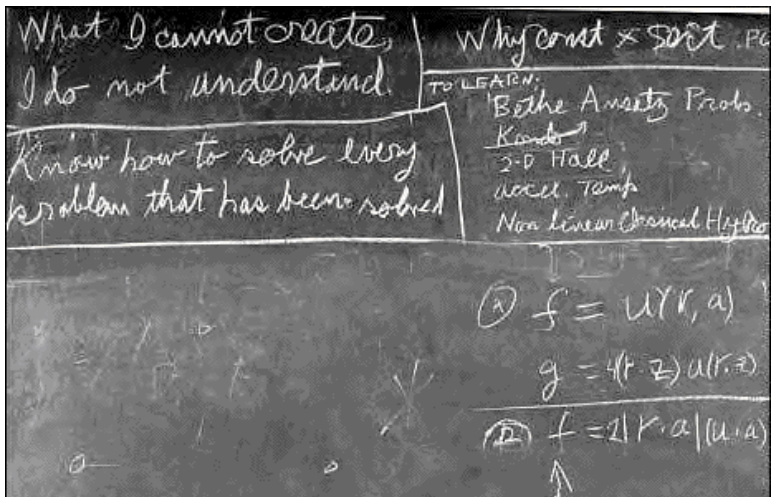 What I cannot create,
I do not understand.
Know how to solve every
problem that has been solved
Why const × sort .PG
TO LEARN:
Bethe Ansatz Probs.
Kondo
2-D Hall
accel. Temp
Non linear Classical Hydro
f = u(r, a)
g = 4(r·z) u(r, z)
f = 2|r·a|(u·a)